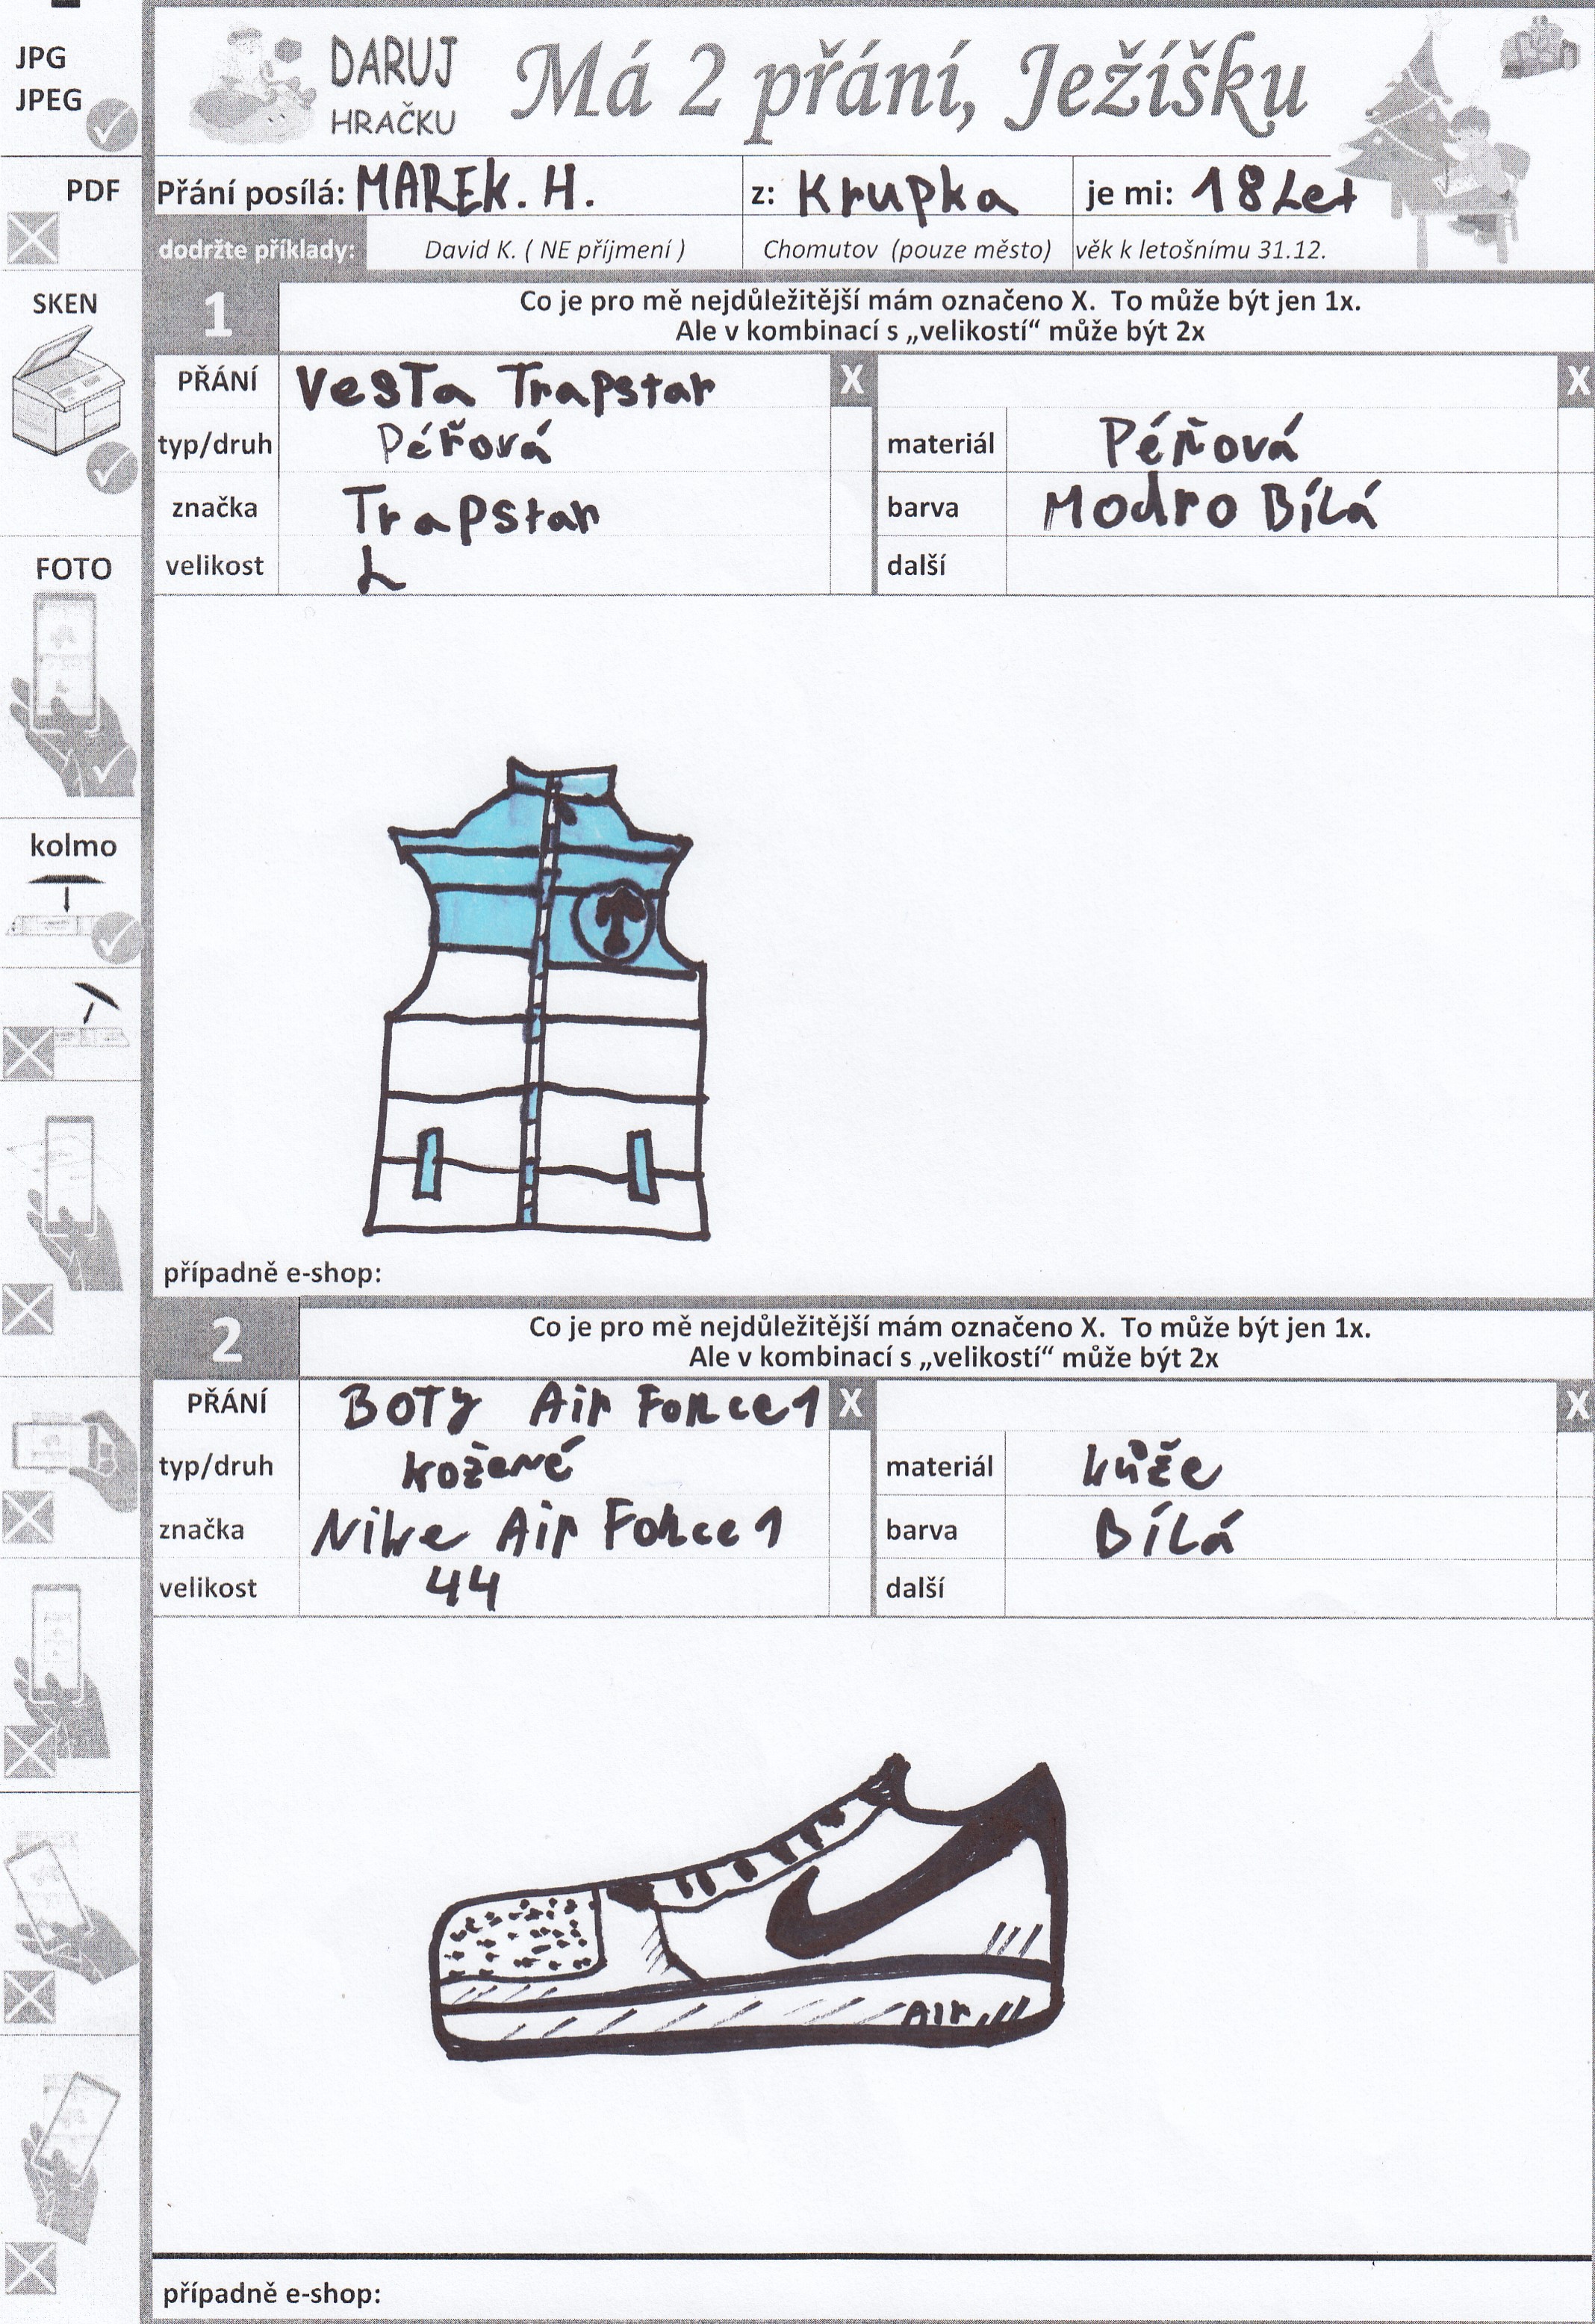 JPG
JPEG
PDF
SKEN
FOTO
kolmo
DARUJ
HRAČKU
Má 2 přání, Ježíšku
Přání posílá: MAREK. H. z: Krupka je mi: 18 Let
dodržte příklady: David K. ( NE příjmení ) Chomutov (pouze město) věk k letošnímu 31.12.
1
Co je pro mě nejdůležitější mám označeno X. To může být jen 1x.
Ale v kombinací s „velikostí“ může být 2x
PŘÁNÍ VesTa Trapstar X X
typ/druh Péřová materiál Péřová
značka Trapstar barva Modro Bílá
velikost L další
případně e-shop:
2
Co je pro mě nejdůležitější mám označeno X. To může být jen 1x.
Ale v kombinací s „velikostí“ může být 2x
PŘÁNÍ BOTY Air Force 1 X X
typ/druh kožené materiál kůže
značka Nike Air Force 1 barva Bílá
velikost 44 další
Air
případně e-shop: